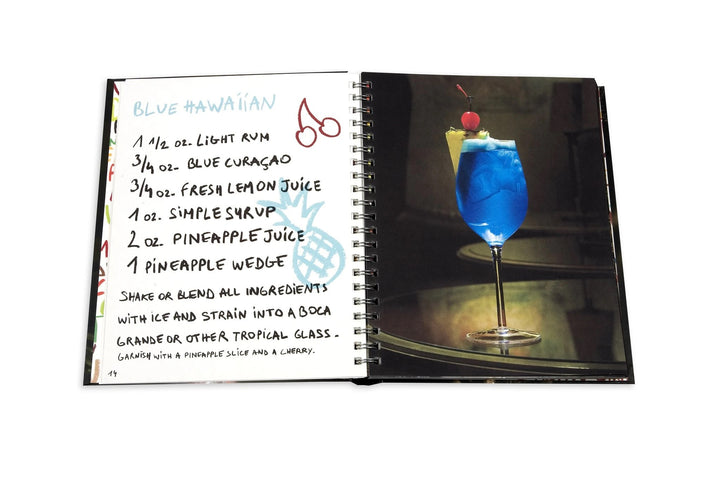 BLUE HAWAiiAN
1 1/2 oz. LIGHT RUM
3/4 oz. BLUE CURAÇAO
3/4 oz. FRESH LEMON JUICE
1 oz. SIMPLE SYRUP
2 oz. PINEAPPLE JUICE
1 PINEAPPLE WEDGE
SHAKE OR BLEND ALL INGREDIENTS
WITH ICE AND STRAIN INTO A BOCA
GRANDE OR OTHER TROPICAL GLASS.
GARNISH WITH A PINEAPPLE SLICE AND A CHERRY.
14